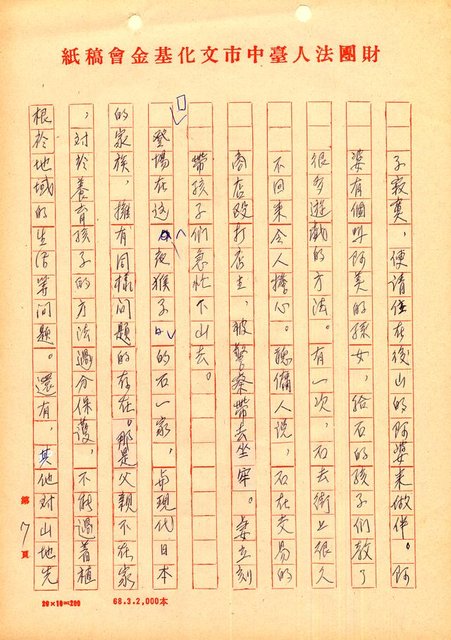 財團法人臺中市文化基金會稿紙
子寂寞,便請住在後山的阿婆來做伴。阿
婆有個叫阿美的孫女,給石的孩子們教了
很多遊戲的方法。有一次,石去街上很久
不回來令人擔心。聽傭人說,石在交易的
商店毆打店主,被警察帶去坐牢。妻立刻
帶孩子們急忙下山去。
登場在這「夜猴子」的石一家,與現代日本
的家族,擁有同樣問題的存在。那是父親不在家
,對於養育孩子的方法過分保護,不能過着植
根於地域的生活等問題。還有,其他對山地先
第7頁
20×10=200
68.3.2,000本